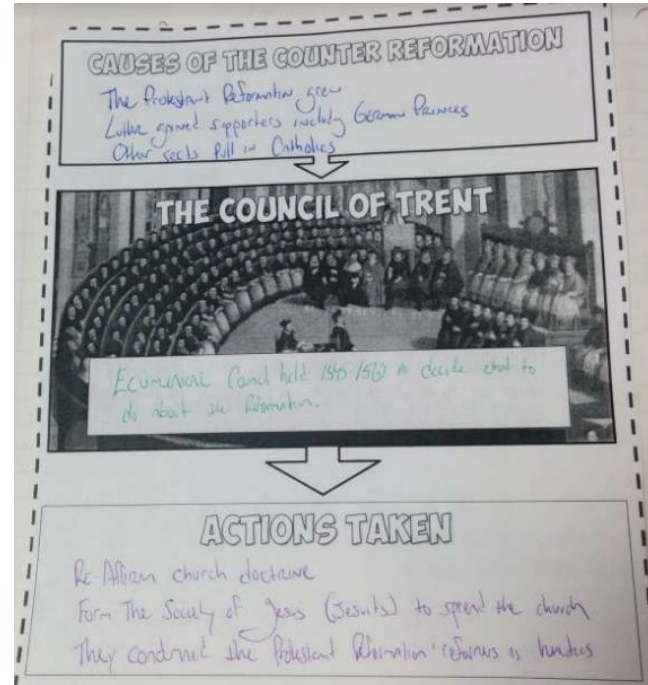 CAUSES OF THE COUNTER REFORMATION
The Protestant Reformation grew
Luther gained supporters including German Princes
Other sects Pull in Catholics
THE COUNCIL OF TRENT
ECUMENICAL Council held 1545-1563 to decide what to
do about the Reformation.
ACTIONS TAKEN
Re-Affirm church doctrine
Form The Society of Jesus (Jesuits) to spread the church
They condemned the Protestant Reformation reformers as